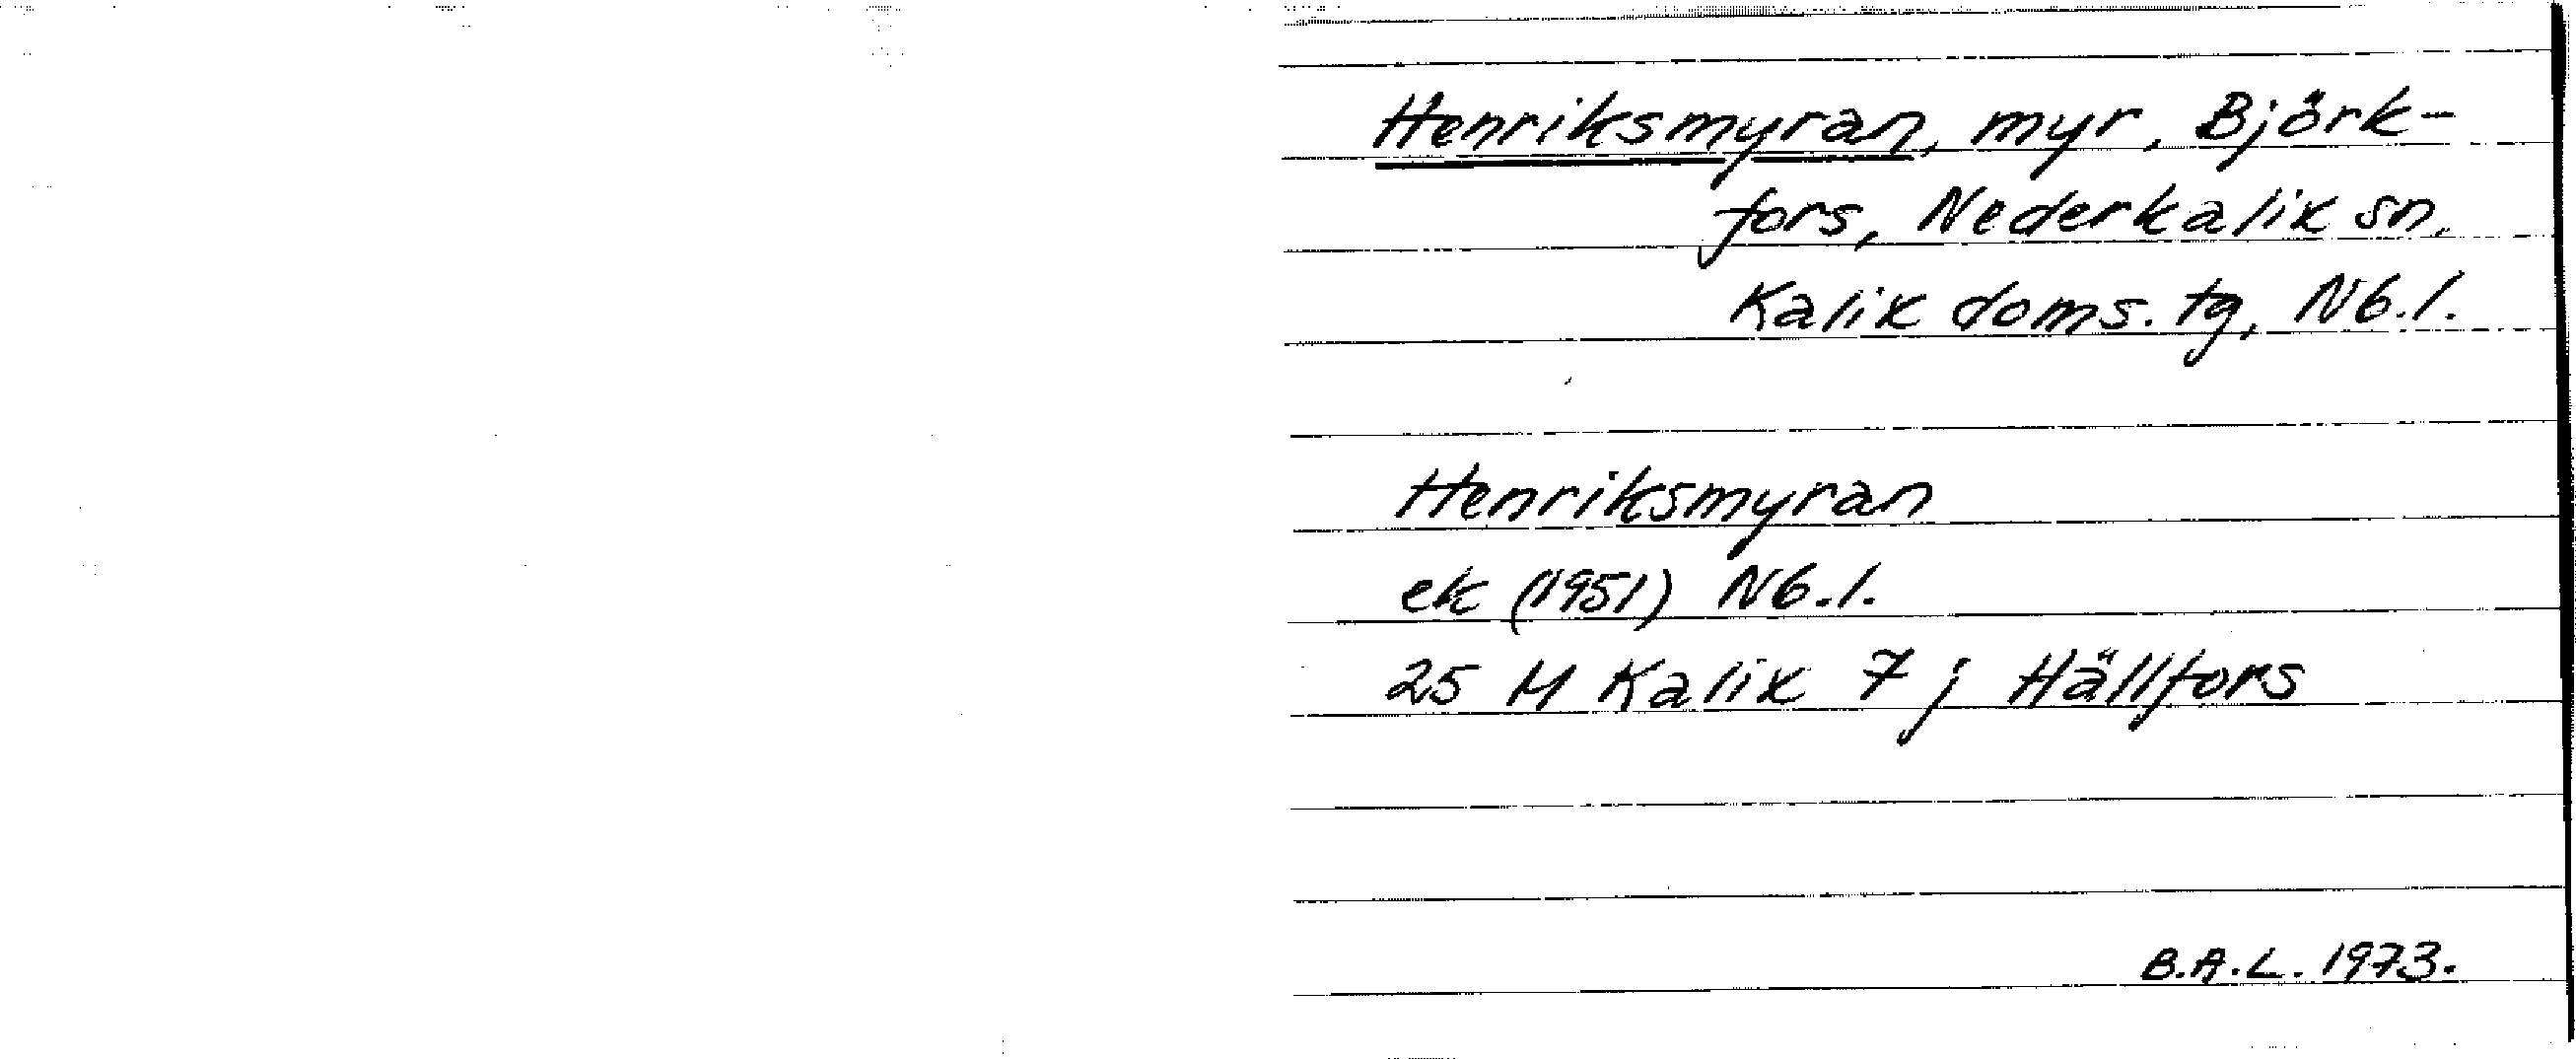 Henriksmyran, myr, Björk-
fors, Nederkalix sn.
Kalix doms. tg, Nb.l.
Henriksmyran
ek (1951) Nb.l.
25 M Kalix 7 j Hällfors
B.A.L. 1973.